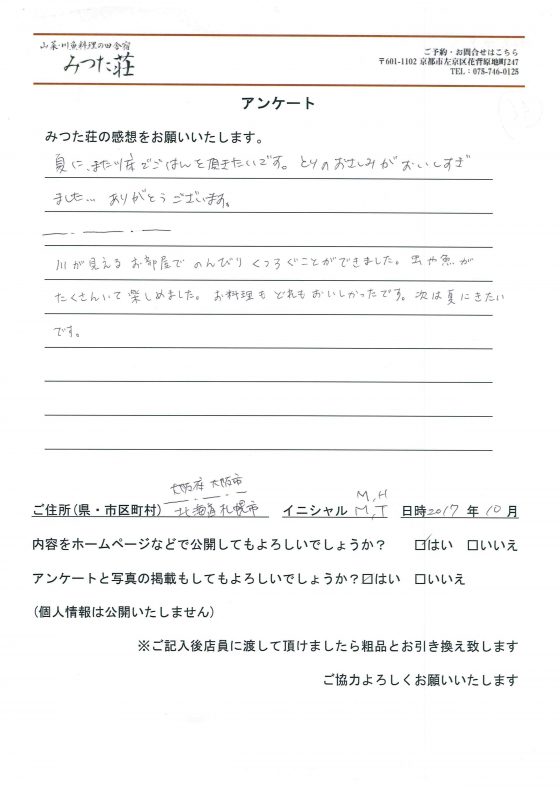 山菜・川魚料理の田舎宿
みつた荘
ご予約・お問合せはこちら
〒601-1102 京都市左京区花背原地町247
TEL：075-746-0123
アンケート
みつた荘の感想をお願いいたします。
夏に、また川床でごはんを頂きたいです。とりのおさしみがおいしすぎ
ました… ありがとうございます。
川が見えるお部屋で のんびり くつろぐことができました。虫や魚が
たくさんいて 楽しめました。お料理も どれもおいしかったです。次は夏にきたい
です。
大阪府 大阪市
M,H
ご住所(県・市区町村) 北海道札幌市 イニシャル M,T 日時2017 年 10 月
内容をホームページなどで公開してもよろしいでしょうか？ ☑はい □いいえ
アンケートと写真の掲載もしてもよろしいでしょうか？☑はい □いいえ
(個人情報は公開いたしません)
※ご記入後店員に渡して頂けましたら粗品とお引き換え致します
ご協力よろしくお願いいたします